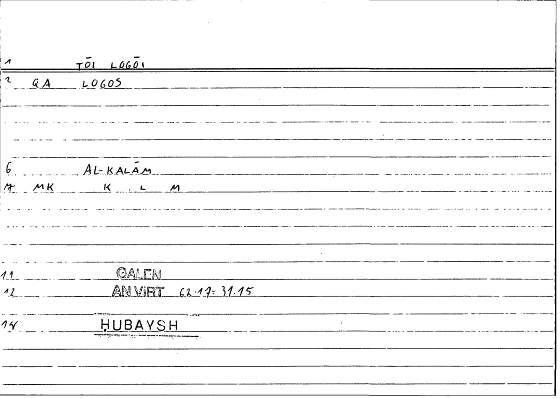 1 TŌI LOGŌI
2 GA LOGOS
6 AL-KALĀM
7 MK K L M
11 GALEN
12 AN VIRT 62.17=31.15
14 ḤUBAYSH